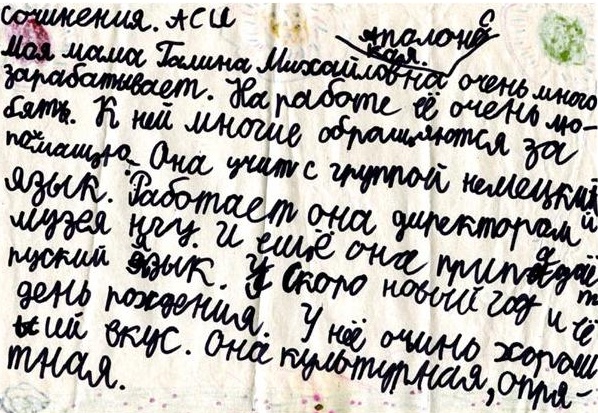 сочинения. АСИ
Аполонс
кая.
моя мама Галина Михайловна очень много
зарабатывает. На работе её очень лю-
бять. К ней многие обращяются за
помащью. Она учит с группой немецкий
язык. Работает она директорам
музея нгу. И ещё она припадаёт
руский язык. У скоро новый год и её
день рождения. У неё очинь хорош
ый вкус. Она культурная, опря-
тная.